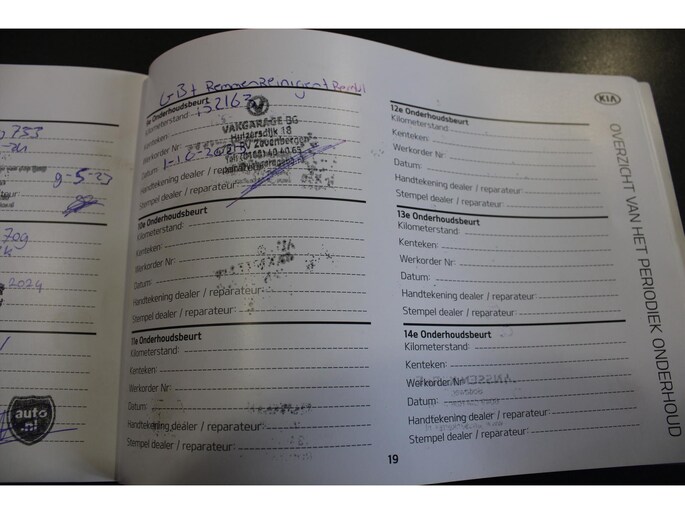 753
9-5-23
2024
auto
.nl
GB+ Remmenreinigen
9e Onderhoudsbeurt
Kilometerstand: 152163
Kenteken:
Werkorder Nr:
Datum:
Handtekening dealer / reparateur:
Stempel dealer / reparateur:
VAKGARAGE BG
Huizersdijk 18
BV Zevenbergen
Tel: (0168) 40 40 65
10e Onderhoudsbeurt
Kilometerstand:
Kenteken:
Werkorder Nr:
Datum:
Handtekening dealer / reparateur:
Stempel dealer / reparateur:
11e Onderhoudsbeurt
Kilometerstand:
Kenteken:
Werkorder Nr:
Datum:
Handtekening dealer / reparateur:
Stempel dealer / reparateur:
12e Onderhoudsbeurt
Kilometerstand:
Kenteken:
Werkorder Nr:
Datum:
Handtekening dealer / reparateur:
Stempel dealer / reparateur:
13e Onderhoudsbeurt
Kilometerstand:
Kenteken:
Werkorder Nr:
Datum:
Handtekening dealer / reparateur:
Stempel dealer / reparateur:
14e Onderhoudsbeurt
Kilometerstand:
Kenteken:
Werkorder Nr:
Datum:
Handtekening dealer / reparateur:
Stempel dealer / reparateur:
19
KIA
OVERZICHT VAN HET PERIODIEK ONDERHOUD